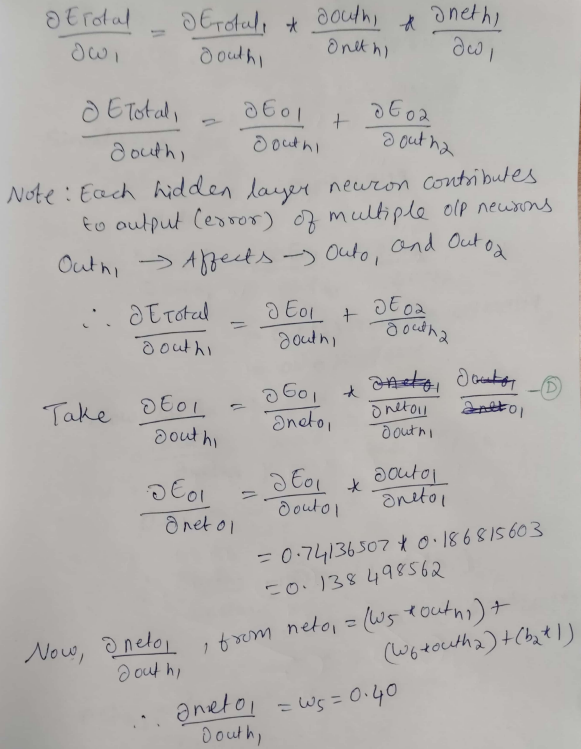 ∂ETotal/∂w1 = ∂ETotal1/∂outh1 * ∂outh1/∂neth1 * ∂neth1/∂w1
∂ETotal1/∂outh1 = ∂Eo1/∂outh1 + ∂Eo2/∂outh2
Note: Each hidden layer neuron contributes
to output (error) of multiple o/p neurons
Outh1 → Affects → Outo1 and Outo2
∴ ∂ETotal/∂outh1 = ∂Eo1/∂outh1 + ∂Eo2/∂outh2
Take ∂Eo1/∂outh1 = ∂Eo1/∂neto1 * ∂neto1/∂outh1 - D
∂Eo1/∂neto1 = ∂Eo1/∂outo1 * ∂outo1/∂neto1
= 0.74136507 * 0.186815603
= 0.138498562
Now, ∂neto1/∂outh1, from neto1 = (w5 * outh1) +
(w6 * outh2) + (b2 * 1)
∴ ∂neto1/∂outh1 = w5 = 0.40